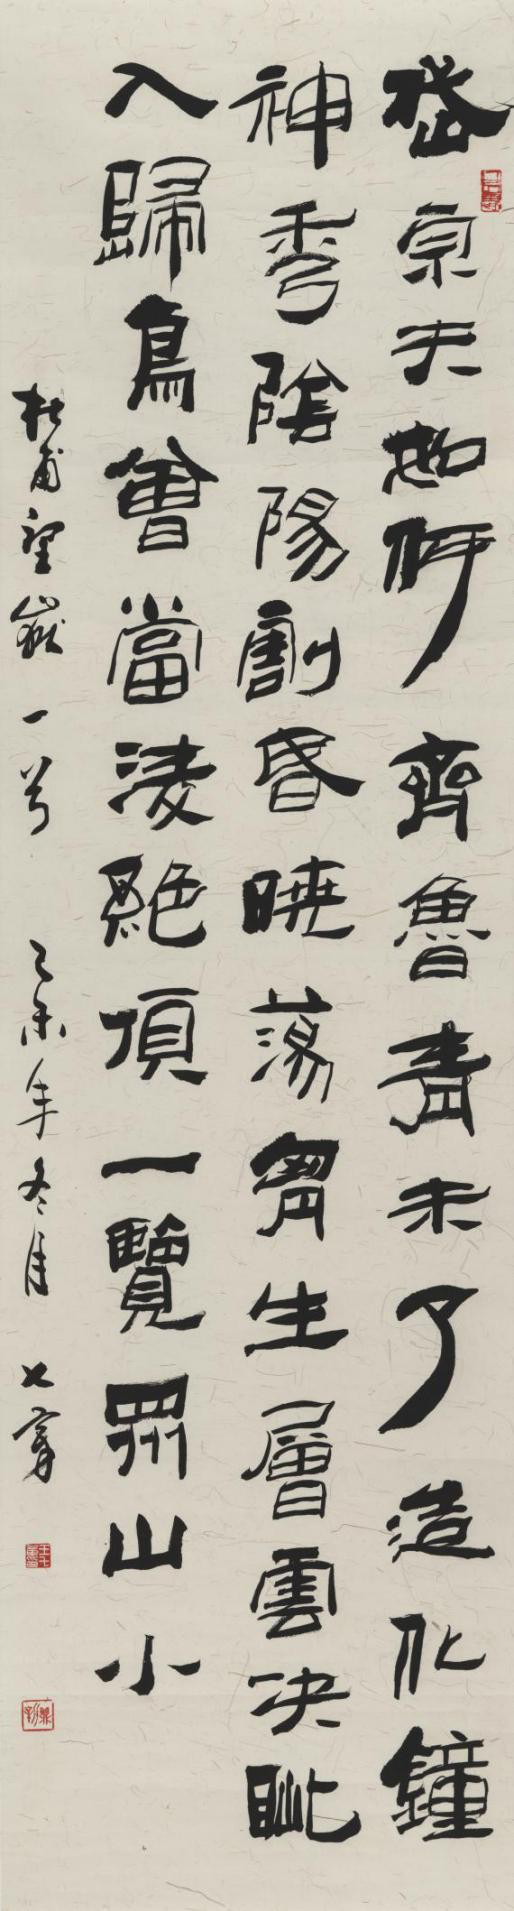 岱宗夫如何齊魯青未了造化鐘
神秀陰陽割昏曉蕩胷生層雲决眦
入歸鳥會當淩絕頂一覽眾山小
杜甫望嶽一首 乙未年冬月